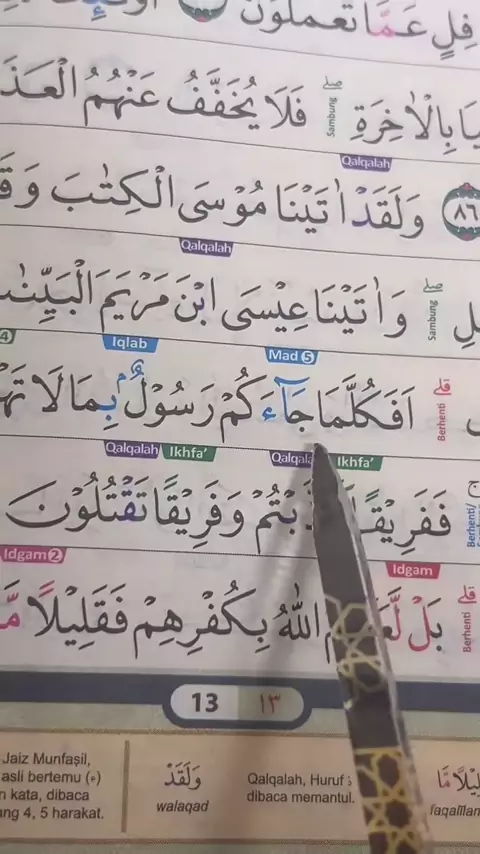 فِلٍ عَمَّا تَعْمَلُوْنَ
بِالْاٰخِرَةِ ۖ فَلَا يُخَفَّفُ عَنْهُمُ
Sambung
Qalqalah
٨٦ وَلَقَدْ اٰتَيْنَا مُوْسَى الْكِتٰبَ
Qalqalah
وَاٰتَيْنَا عِيْسَى ابْنَ مَرْيَمَ
Sambung
Iqlab Mad 5
اَفَكُلَّمَا جَاۤءَكُمْ رَسُوْلٌۢ بِمَا لَا
Berhenti
Qalqalah Ikhfa’ Ikhfa’
وَفَرِيْقًا تَقْتُلُوْنَ
Berhenti/
Idgam 2 Idgam
بَلْ اللّٰهُ بِكُفْرِهِمْ فَقَلِيْلًا مَّا
Berhenti
13 ١٣
Jaiz Munfaṣil,
asli bertemu (ء)
kata, dibaca
4, 5 harakat.
وَلَقَدْ
walaqad
Qalqalah, Huruf
dibaca memantul.